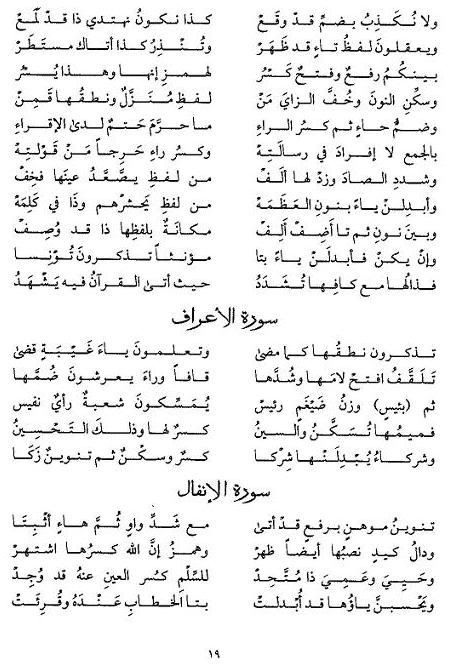 ولا نُكَذِّبُ بضمٍّ قد وقَعْ كذا نكونُ نهتدي ذا قد لَمَعْ
ويعقلونَ لفظُ تاءٍ قد ظَهَرْ وتُنْذِرُ كذا أتاك مستَطَرْ
بينكُم رفعٌ وفتحٌ كَسَرُ لهمزِ إنها وهذا يُنْشَرُ
وسكِّنِ النونَ وخُفَّ الزايَ مَنْ لفظِ مُنَزَّلٌ ونطقُها قَمِنْ
وضمُّ حاءٍ ثم كسرُ الراءِ ما حرَّمَ حَتمٌ لدىٰ الإقراءِ
بالجمعِ لا إفرادَ في رسالَتِهْ وكسرُ راءِ حَرِجاً مَنْ قَوْلَتِهْ
وشددِ الصادَ وزدْ لها ألَفْ من لفظِ يصَّعَّدُ عينَها فخِفْ
وأبدِلَنْ ياءً بنونِ العظَمَةْ من لفظِ يَحشرُهم وذَا في كَلِمَةْ
وبينَ نونٍ ثم تا أضِفْ ألِفْ مكانَةً بلفظِها ذا قد وُصِفْ
وإنْ يكنْ فأبدلَنْ ياءً بتا مؤنثاً تذكرونَ تُؤْنِسا
فذالُها مع كافِها تُشَدَّدُ حيث أتىٰ القرآنُ فيه يَشْهَدُ
سورة الأعراف
تذكرون نطقُها كما مضىٰ وتعلمونَ ياءَ غَيْبَةٍ قضىٰ
تَلَقَّفُ افتحْ لامَها وشُدَّها قافاً وراءَ يعرشونَ ضُمَّها
ثم (بئيسٍ) وزنُ ضَيْغَمٍ رئيسْ يُمَسِّكونَ شعبةٌ رأيٌ نفيسْ
فميمُها تُسَكَّنُ والسينُ كسرٌ لها وذلكَ التَحْسِينُ
وشركاءُ يُبْدِلَنْها شِركا كسرٌ وسكْنٌ ثم تنوينٌ زَكَا
سورة الإنفال
تنوينُ موهنٍ برفعٍ قدْ أتىٰ مع شَدِّ واوٍ ثُمَّ هاءٍ أثْبِتَا
ودالُ كيدٍ نصبُها أيضاً ظهرْ وهمزُ إنَّ الله كسرُها اشتهرْ
وحَيِيَ وعَمِيَ ذا مُتَّحِدْ للسِّلْمِ كسُر العينِ عنهُ قد وُجِدْ
ويَحْسَبنَّ ياؤُها قد أُبْدلَتْ بتا الخطابِ عَنْدَهُ وقُرِئَتْ
١٩